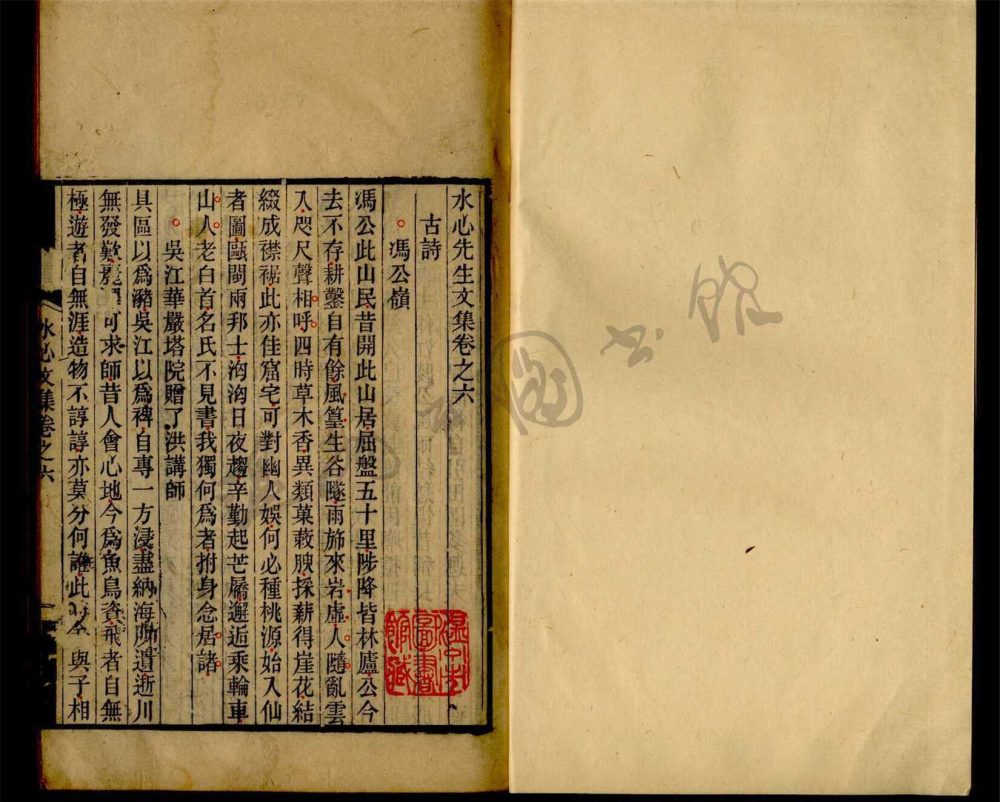 水心先生文集卷之六
古詩
馮公嶺
馮公此山民昔開此山居屈盤五十里陟降皆林廬公今
去不存耕鑿自有餘風篁生谷隧雨旆來岩虛人隨亂雲
入咫尺聲相呼四時草木香異類菓蔌腴採薪得崖花結
綴成襟裾此亦佳窟宅可對幽人娛何必種桃源始入仙
者圖甌閩兩邦士洶洶日夜趨辛勤起芒屩邂逅乘輪車
山人老白首名氏不見書我獨何為者拊身念居諸
吳江華嚴塔院贈了洪講師
具區以為瀦吳江以為裨自專一方浸盡納海所遺逝川
無發歎可求師昔人會心地今為魚鳥資飛者自無
極遊者自無涯造物不諄諄亦莫分何誰此與子相
水心文集卷之六
溫州市圖書館藏